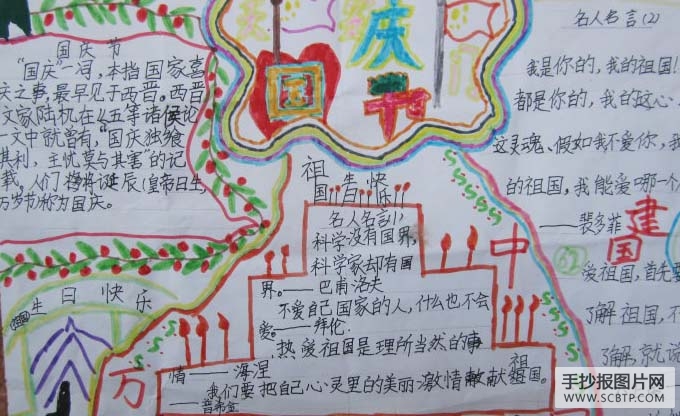 国庆节
国庆节
“国庆”一词，本指国家喜
庆之事，最早见于西晋。西晋
文家陆机在《五等诸侯论》
一文中就曾有，“国庆独飨
其利，主忧莫与其害”的记
载。人们将诞辰（皇帝日生，
万岁节）称为国庆。
生日快乐
祖
国生日快
乐
名人名言(1)
科学没有国界，
科学家却有国
界。——巴甫洛夫
不爱自己国家的人，什么也不会
爱。——拜伦
热爱祖国是理所当然的事
情——海涅
我们要把自己心灵里的美丽激情献献祖国。
祖
——普希金
名人名言(2)
我是你的，我的祖国！
都是你的，我的这心、
这灵魂、假如我不爱你，我
的祖国，我能爱哪一个
——裴多菲
建
国
62
爱祖国，首先要
了解祖国，不
了解，就说
中
万
手抄报图片网
WWW.SCBTP.COM